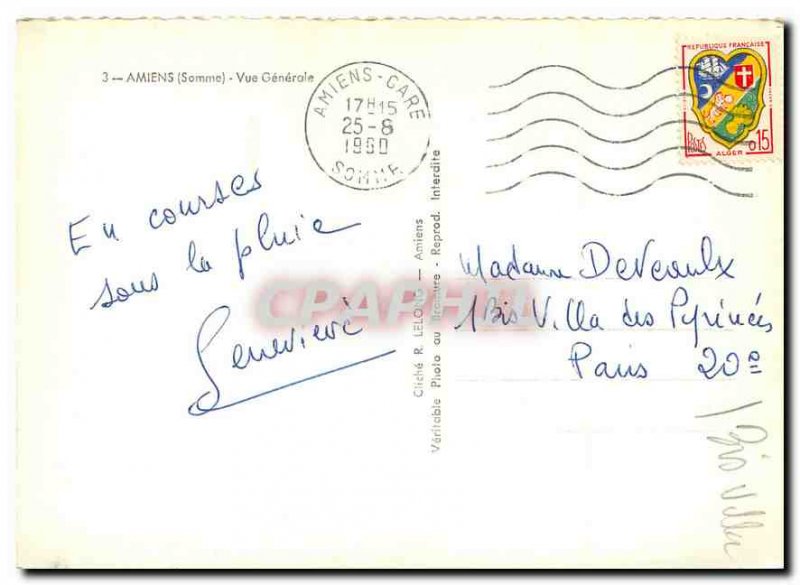 3 — AMIENS (Somme) - Vue Générale
AMIENS-GARE
17H15
25-8
1960
SOMME
REPUBLIQUE FRANÇAISE
Postes
0,15
ALGER
En courses
sous la pluie
Geneviève
Cliché R. LELONG — Amiens
Véritable Photo au Bromure - Reprod. Interdite
CPAPHIL
Madame Deveaulx
1 Bis Villa des Pyrénées
Paris 20e
1 Bis Villa